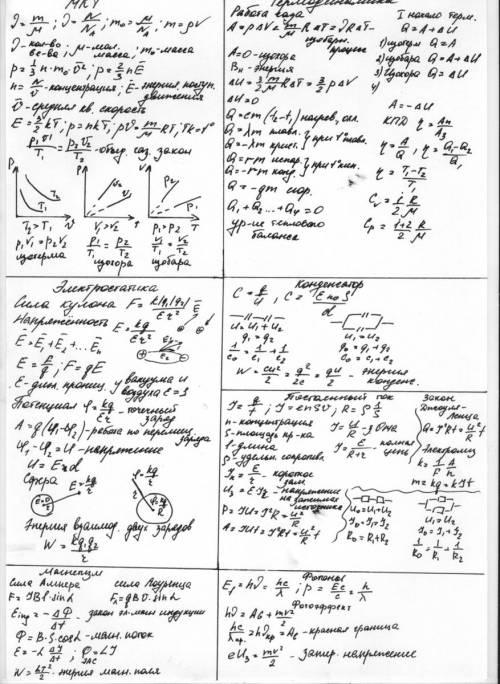 МКТ
ν = m/μ ; ν = N/N_A ; m₀ = μ/N_A ; m = ρV
ν - кол-во в-ва μ - мол. масса ; m₀ - масса
p = 1/3 n · m₀ v̄² ; p = 2/3 n Ē
n = N/V - концентрация ; Ē - энергия поступ. движения
v̄ - средняя кв. скорость
E = 3/2 kT ; p = nkT ; pV = m/μ RT ;
p₁V₁/T₁ = p₂V₂/T₂ - объед. газ. закон
P T₁ T₂ V
P V₂ V₁ T
V P₂ P₁ T
T₂ > T₁ V₁ > V₂ P₁ > P₂
p₁V₁ = p₂V₂ P₁/T₁ = P₂/T₂ V₁/T₁ = V₂/T₂
изотерма изохора изобара
Термодинамика
Работа газа
A = pΔV = m/μ RΔT = νRΔT - изобарн. процесс
A = 0 - изохора
Вн - энергия
ΔU = 3/2 m/μ RΔT = 3/2 pΔV
ΔU = 0
Q = cm(t₂ - t₁) нагрев, охл.
Q = λm плавл.
Q = -λm крист. } при t° плавл.
Q = rm испар.
Q = -rm конд. } при t° кип.
Q = -qm сгор.
Q₁ + Q₂ ... + Q₄ = 0
ур-ие теплового баланса
I начало терм.
Q = A + ΔU
1) изотерм Q = A
2) изобара Q = A + ΔU
3) изохора Q = ΔU
4)
A = -ΔU
КПД η = Aп/Aз
η = A/Q , η = Q₁-Q₂/Q₁
η = T₁-T₂/T₁
Cᵥ = i/2 R/μ
Cₚ = i+2/2 R/μ
Электростатика
Сила кулона F = k|q₁||q₂|/εr²
Напряжённость E = kq/εr²
Ē = Ē₁ + Ē₂ ... Ēn
E = F/q ; F = qE
ε - диэл. прониц. у вакуума и воздуха ε = 1
Потенциал φ = kq/εr - точечный заряд
A = q(φ₁ - φ₂) - работа по перемещ. заряда
φ₁ - φ₂ = U - напряжение
U = E · d
Сфера E = kq/r φ = kq/r
E = 0
Энергия взаимод. двух зарядов
W = kq₁q₂/r
Конденсатор
C = q/U , C = εε₀S/d
U = U₁ + U₂ U₁ = U₂
q₁ = q₂ q₀ = q₁ + q₂
1/C₀ = 1/C₁ + 1/C₂ C₀ = C₁ + C₂
W = CU²/2 = q²/2C = qU/2 - энергия конденс.
Постоянный ток
I = q/t ; I = enSV ; R = ρ l/S
n - концентрация
S - площадь пр-ка
l - длина
ρ - удельн. сопротивл.
I = U/R - з. Ома
I = E/R+r - полная цепь
Iк = E/r - короткое зам
U₃ = E - Ir - напряжение на зажимах источника
P = IU = I²R = U²/R
A = IUt = I²Rt = U²/R t
Закон Джоуля-Ленца
Q = I²Rt = U²/R t
Электролиз
k = 1/F A/n
m = kq = kIt
U₀ = U₁ + U₂
I₀ = I₁ = I₂
R₀ = R₁ + R₂
U₁ = U₂
I₀ = I₁ + I₂
1/R₀ = 1/R₁ + 1/R₂
Магнетизм
Сила Ампера сила Лоуренца
F = IBl·sinα Fл = qBυ·sinα
Eинд = -ΔΦ/Δt - закон эл. магн индукции
Φ = B·S·cosα - магн. поток
E = -L ΔI/Δt ; Φ = LI
W = LI²/2 - энергия магн. поля
Фотоны
E₁ = hν = hc/λ ; p = E/c = h/λ
Фотоэффект
hν = Aв + mv²/2
hc/λкр = hνкр = Aв - красная граница
eU₃ = mv²/2 - запир. напряжение